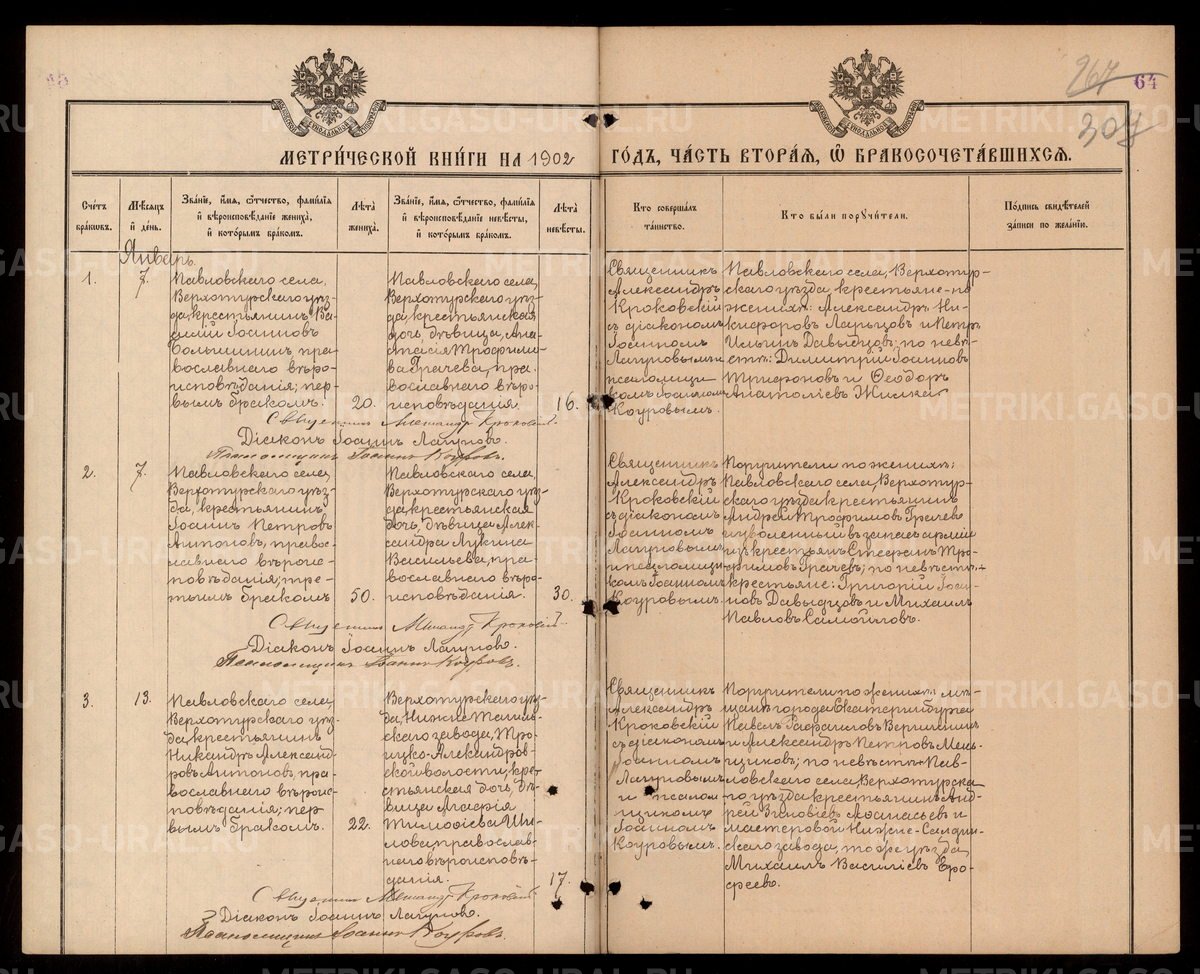 267
64
307
МЕТРИ́ЧЕСКОЙ КНИ́ГИ НА 1902 ГО́ДЪ, ЧА́СТЬ ВТОРА́Я, Ѡ БРАКОСОЧЕТА́ВШИХСЯ.
Сче́тъ бра́ковъ.
Мѣ́сяцъ и҆ де́нь.
Зва́ніе, и҆́мя, ѻ҆́тчество, фами́лія и҆ вѣроисповѣ́даніе жениха̀, и҆ кото́рымъ бра́комъ.
Лѣ́та жениха̀.
Зва́ніе, и҆́мя, ѻ҆́тчество, фами́лія и҆ вѣроисповѣ́даніе невѣ́сты, и҆ кото́рымъ бра́комъ.
Лѣ́та невѣ́сты.
Кто соверша́лъ та́инство.
Кто бы́ли порꙋчи́тели.
По́дпись свидѣ́телей за́писи по жела́нію.
Январь.
1.
7.
Павловскаго села,
Верхотурскаго уѣз-
да, крестьянинъ Ва-
силій Іоанновъ
православнаго вѣро-
исповѣданія; пер-
вымъ бракомъ.
20.
Павловскаго села,
Верхотурскаго уѣз-
да, крестьянская
дочь, дѣвица, Ана-
стасія Трофимо-
ва Грачева, пра-
вославнаго вѣро-
исповѣданія.
16.
Священникъ
Александръ
Кроковскій
съ діакономъ
Іоанномъ
Лагуновымъ и
псаломщи-
комъ Іоанномъ
Коуровымъ.
Павловскаго села, Верхотур-
скаго уѣзда, крестьяне-по
женихѣ: Александръ Ни-
кифоровъ Ларьцовъ и Петръ
Ильинъ Давыдцовъ; по невѣ-
стѣ: Димитрій Іоанновъ
Трифоновъ и Ѳеодоръ
Анатоліевъ
Священникъ Александръ Кроковскій.
Діаконъ Іоаннъ Лагуновъ.
Псаломщикъ Іоаннъ Коуровъ.
2.
7.
Павловскаго села,
Верхотурскаго уѣз-
да, крестьянинъ
Іоаннъ Петровъ
Антоновъ, право-
славнаго вѣроис-
повѣданія; тре-
тьимъ бракомъ
50.
Павловскаго села,
Верхотурскаго уѣз-
да, крестьянская
дочь, дѣвица Алек-
сандра Лукина
Васильева, пра-
вославнаго вѣро-
исповѣданія.
30.
Священникъ
Александръ
Кроковскій
съ діакономъ
Іоанномъ
Лагуновымъ
и псаломщи-
комъ Іоанномъ
Коуровымъ.
Поручители по женихѣ:
Павловскаго села, Верхотур-
скаго уѣзда крестьянинъ
Андрей Трофимовъ Грачевъ
и уволенный въ запасъ арміи
изъ крестьянъ Стефанъ Тро-
фимовъ Грачевъ; по невѣстѣ-
крестьяне: Григорій Іоан-
новъ Давыдцовъ и Михаилъ
Павловъ Самойловъ.
Священникъ Александръ Кроковскій.
Діаконъ Іоаннъ Лагуновъ.
Псаломщикъ Іоаннъ Коуровъ.
3.
13.
Павловскаго села,
Верхотурскаго уѣз-
да, крестьянинъ
Никандръ Александ-
ровъ Антоновъ, пра-
вославнаго вѣроис-
повѣданія; пер-
вымъ бракомъ.
22.
Верхотурскаго уѣз-
да, Нижне-Тагиль-
скаго завода, Тро-
ицко-Александров-
ской волости, кре-
стьянская дочь, дѣ-
вица Агафія
Тимоѳіева Ши-
лова, православ-
наго вѣроисповѣ-
данія.
17.
Священникъ
Александръ
Кроковскій
съ діакономъ
Іоанномъ
Лагуновымъ
и псалом-
щикомъ
Іоанномъ
Коуровымъ.
Поручители по женихѣ: мѣ-
щане города Екатеринбурга
Павелъ Рафаиловъ
и Александръ Петровъ
по невѣстѣ-Пав-
ловскаго села, Верхотурска-
го уѣзда крестьянинъ Анд-
рей Зиновіевъ и
мастеровой Нижне-Салдин-
скаго завода, того же уѣзда,
Михаилъ Василіевъ Еро-
феевъ.
Священникъ Александръ Кроковскій.
Діаконъ Іоаннъ Лагуновъ.
Псаломщикъ Іоаннъ Коуровъ.
METRIKI.GASO-URAL.RU